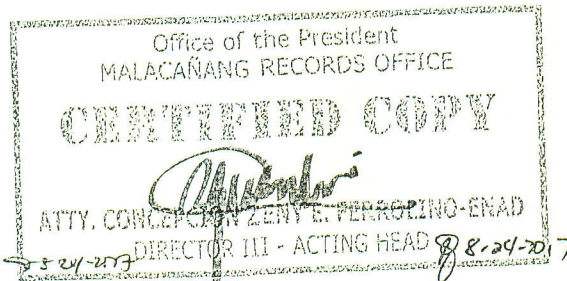 Office of the President
MALACAÑANG RECORDS OFFICE
CERTIFIED COPY
ATTY. CONCEPCION ZENY E. FERROLINO-ENAD
DIRECTOR III - ACTING HEAD 8-24-2017